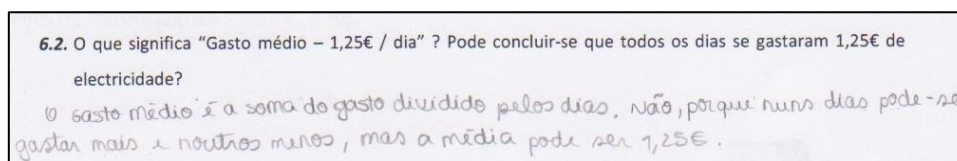 6.2. O que significa “Gasto médio – 1,25€ / dia” ? Pode concluir-se que todos os dias se gastaram 1,25€ de
electricidade?
O gasto médio é a soma do gasto dividido pelos dias. Não, porque nuns dias pode-se
gastar mais e noutros menos, mas a média pode ser 1,25€.